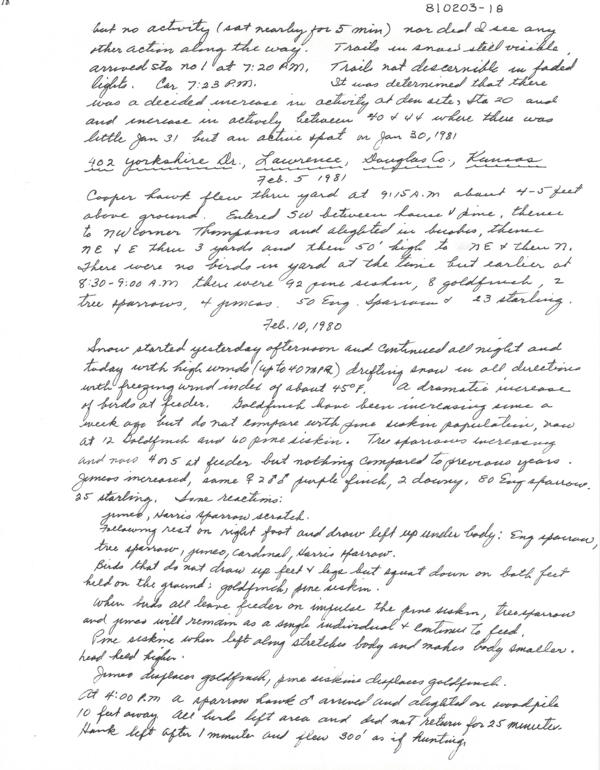 810203-18
but no activity (sat nearby for 5 min) nor did I see any
other action along the way. Trails in snow still visible
arrived Sta no 1 at 7:20 P.M. Trails not discernible in faded
lights. Car 7:23 P.M. It was determined that there
was a decided increase in activity at den site, Sta 20 and
and increase in activity between 40 & 44 where there was
little Jan 31 but an active spot on Jan 30, 1981
402 Yorkshire Dr., Lawrence, Douglas Co., Kansas
Feb. 5 1981
Cooper hawk flew thru yard at 9:15 A.M about 4-5 feet
above ground. Entered SW between house & pine, thence
to NW corner Thompsons and alighted in bushes, thence
NE & E thru 3 yards and then 50' high to NE & then N.
There were no birds in yard at the time but earlier at
8:30-9:00 A.M there were 92 pine siskin, 8 goldfinch, 2
tree sparrows, 4 juncos. 50 Eng. Sparrow & 23 starling.
Feb. 10, 1980
Snow started yesterday afternoon and continued all night and
today with high winds (up to 40 MPH) drifting snow in all directions
with freezing wind index of about 45°F. A dramatic increase
of birds at feeder. Goldfinch have been increasing since a
week ago but do not compare with pine siskin population, now
at 12 Goldfinch and 60 pine siskin. Tree sparrows increasing
and now 4 or 5 at feeder but nothing compared to previous years.
Juncos increased, some 9 2 ♂♂ purple finch, 2 downy, 80 Eng sparrow.
25 starling. Some reactions:
junco, Harris sparrow scratch.
Following rest on right foot and draw left up under body: Eng sparrow,
tree sparrow, junco, Cardinal, Harris sparrow.
Birds that do not draw up feet & legs but squat down on both feet
held on the ground: goldfinch, pine siskin.
When birds all leave feeder on impulse the pine siskin, tree sparrow
and juncos will remain as a single individual & continue to feed.
Pine siskins when left along stretches body and makes body smaller.
head held higher.
Junco displaces goldfinch, pine siskins displaces goldfinch.
At 4:00 P.M a sparrow hawk ♂ arrived and alighted on woodpile
10 feet away all birds left area and did not return for 25 minutes.
Hawk left after 1 minute and flew 300' as if hunting.